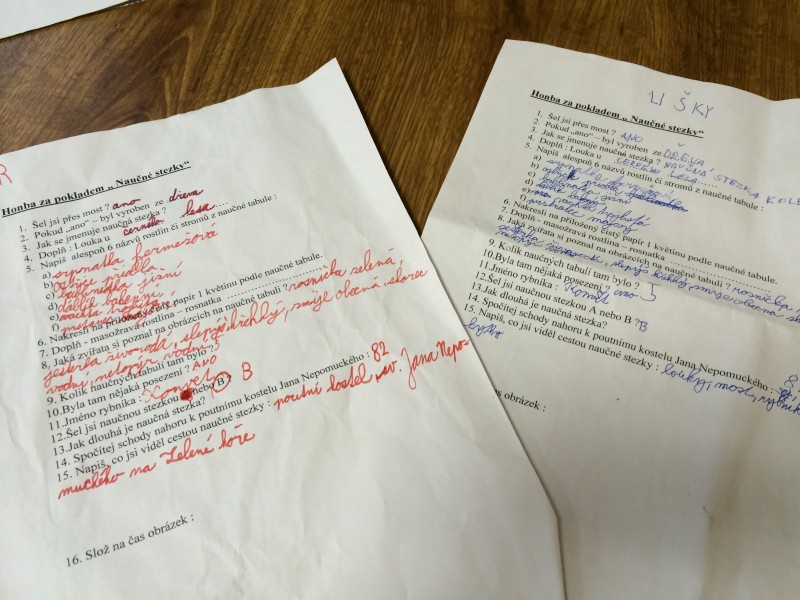 R
Honba za pokladem „ Naučné stezky“
1. Šel jsi přes most ? ano
2. Pokud „ano“ – byl vyroben ze dřeva
3. Jak se jmenuje naučná stezka ?
4. Doplň : Louka u černého lesa
5. Napiš alespoň 6 názvů rostlin či stromů z naučné tabule :
a) srpnatka fermežová
b)
c) jižní
d) ďáblík bahenní
e) vachta trojlistá
f)
6. Nakresli na přiložený čistý papír 1 květinu podle naučné tabule.
7. Doplň - masožravá rostlina – rosnatka
8. Jaká zvířata si poznal na obrázcích na naučné tabuli ? rosnička zelená,
ještěrka živorodá, slepýš křehký, zmije obecná, shorec
vodní, netopýr vodní
9. Kolik naučných tabulí tam bylo ? 5
10.Byla tam nějaká posezení ? ANO
11.Jméno rybníka : Konvent
12.Šel jsi naučnou stezkou nebo B ? B
13.Jak dlouhá je naučná stezka?
14. Spočítej schody nahoru k poutnímu kostelu Jana Nepomuckého : 82
15. Napiš, co jsi viděl cestou naučné stezky : poutní kostel sv. Jana Nepo-
muckého na Zelené hoře
16. Slož na čas obrázek :
LIŠKY
Honba za pokladem „ Naučné stezky“
1. Šel jsi přes most ? ANO
2. Pokud „ano“ – byl vyroben ze DŘEVA
3. Jak se jmenuje naučná stezka ? NAUČNÁ STEZKA KOLE
4. Doplň : Louka u ČERNÉHO LESA
5. Napiš alespoň 6 názvů rostlin či stromů z naučné tabule :
a) srpnatka fermežová
b)
c) jižní
d) ďáblík bahenní
e) vachta trojlistá
f)
6. Nakresli na přiložený čistý papír 1 květinu podle naučné tabule.
7. Doplň - masožravá rostlina – rosnatka
8. Jaká zvířata si poznal na obrázcích na naučné tabuli ? rosnička
slepýš křehký, zmije obecná
9. Kolik naučných tabulí tam bylo ? 5
10.Byla tam nějaká posezení ? ano
11.Jméno rybníka :
12.Šel jsi naučnou stezkou A nebo B ? B
13.Jak dlouhá je naučná stezka?
14. Spočítej schody nahoru k poutnímu kostelu Jana Nepomuckého : 8
15. Napiš, co jsi viděl cestou naučné stezky : louky, most, rybník
kytky
as obrázek :